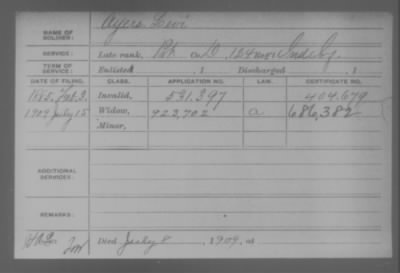 NAME OF SOLDIER: Ayers Levi
SERVICE: Late rank, Pvt Co. D, 124 N.Y. Inf.
TERM OF SERVICE: Enlisted , 1 Discharged , 1
DATE OF FILING. CLASS. APPLICATION NO. LAW. CERTIFICATE NO.
1885, Feb. 3. Invalid, 531.397 404.679
1909 July 15 Widow, 923,702 a 686,382
Minor,
ADDITIONAL SERVICES:
REMARKS:
Died July 8, 1909, at